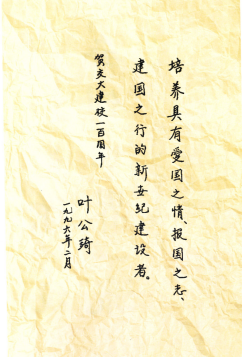 培养具有爱国之情、报国之志、
建国之行的新世纪建设者。
贺交大建校一百周年
叶公琦
一九九六年二月